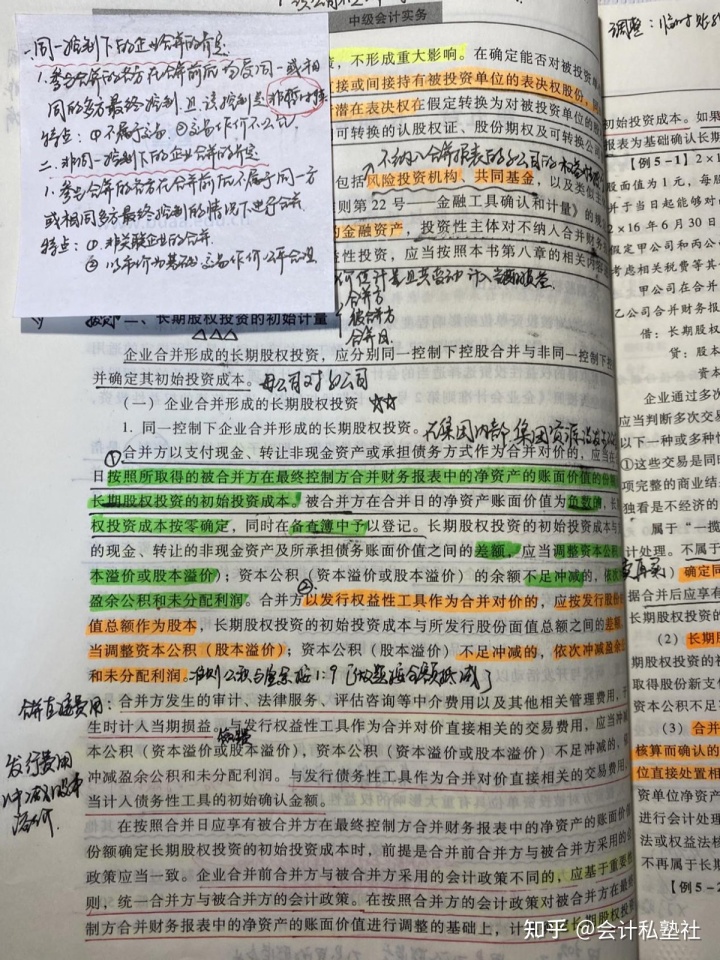 中级会计实务
一.同一控制下的企业合并的肯定
1.参与合并的各方在合并前后均受同一或相
同的多方最终控制,且该控制是非暂时性
特点:①不属于交易 ②交易作价不公允
二.非同一控制下的企业合并的肯定
1.参与合并的各方在合并前后不属于同一方
或相同多方最终控制的情况下进行合并
特点:①非关联企业的合并
②以市价为基础,交易作价公平合理
,不形成重大影响。在确定能否对被投资单
接或间接持有被投资单位的表决权股份,
潜在表决权在假定转换为对被投资单位的股
可转换的认股权证、股份期权及可转换公司
不纳入合并报表的子公司的
包括风险投资机构、共同基金,以及类似主
则第 22 号——金融工具确认和计量》的规
的金融资产,投资性主体对不纳入合并财务
性投资,应当按照本书第八章的相关内容
计量且其变动计入当期损益
合并方
被合并方
合并日
二、长期股权投资的初始计量
企业合并形成的长期股权投资,应分别同一控制下控股合并与非同一控制下控
并确定其初始投资成本。母公司对子公司
(一)企业合并形成的长期股权投资 ☆☆
1. 同一控制下企业合并形成的长期股权投资。在集团内部 集团资源
①合并方以支付现金、转让非现金资产或承担债务方式作为合并对价的,应当在
日按照所取得的被合并方在最终控制方合并财务报表中的净资产的账面价值的份额
长期股权投资的初始投资成本。被合并方在合并日的净资产账面价值为负数的,长
权投资成本按零确定,同时在备查簿中予以登记。长期股权投资的初始投资成本与
的现金、转让的非现金资产及所承担债务账面价值之间的差额,应当调整资本公积
本溢价或股本溢价);资本公积(资本溢价或股本溢价)的余额不足冲减的,依次
盈余公积和未分配利润。②合并方以发行权益性工具作为合并对价的,应按发行股份
值总额作为股本,长期股权投资的初始投资成本与所发行股份面值总额之间的差额
当调整资本公积(股本溢价);资本公积(股本溢价)不足冲减的,依次冲减盈余
和未分配利润。
合并直接费用:合并方发生的审计、法律服务、评估咨询等中介费用以及其他相关管理费用,于
生时计入当期损益。与发行权益性工具作为合并对价直接相关的交易费用,应当冲
本公积(资本溢价或股本溢价),资本公积(资本溢价或股本溢价)不足冲减的,
冲减盈余公积和未分配利润。与发行债务性工具作为合并对价直接相关的交易费用,
当计入债务性工具的初始确认金额。
发行费用
冲减股本
溢价
在按照合并日应享有被合并方在最终控制方合并财务报表中的净资产的账面价值
份额确定长期股权投资的初始投资成本时,前提是合并前合并方与被合并方采用的会
政策应当一致。企业合并前合并方与被合并方采用的会计政策不同的,应基于重要性
则,统一合并方与被合并方的会计政策。在按照合并方的会计政策对被合并方在最终
制方合并财务报表中的净资产的账面价值进行调整的基础上,计
长期股权投资
调整:
初始投资成本。如果
报表为基础确认长期
【例 5-1】2×1
股面值为 1 元,每股
并于当日起能够对
2×16 年 6 月 30 日
假定甲公司和丙公
考虑相关税费等其
甲公司在合并
乙公司合并财务报
借:长期股权
贷:股本
资本
企业通过多次
应当判断多次交易
以下一种或多种情
①这些交易是同时
项完整的商业结
独看是不经济的
属于“一揽
计处理。不属于
(1)确定同
据合并后应享有
长期股权投资的
(2)长期
期股权投资的初
取得股份新支付
资本公积不足
(3)合并
核算而确认的
位直接处置相
资单位净资产
进行会计处理
法或权益法核
不再属于长期
【例 5-2
知乎 @会计私塾社